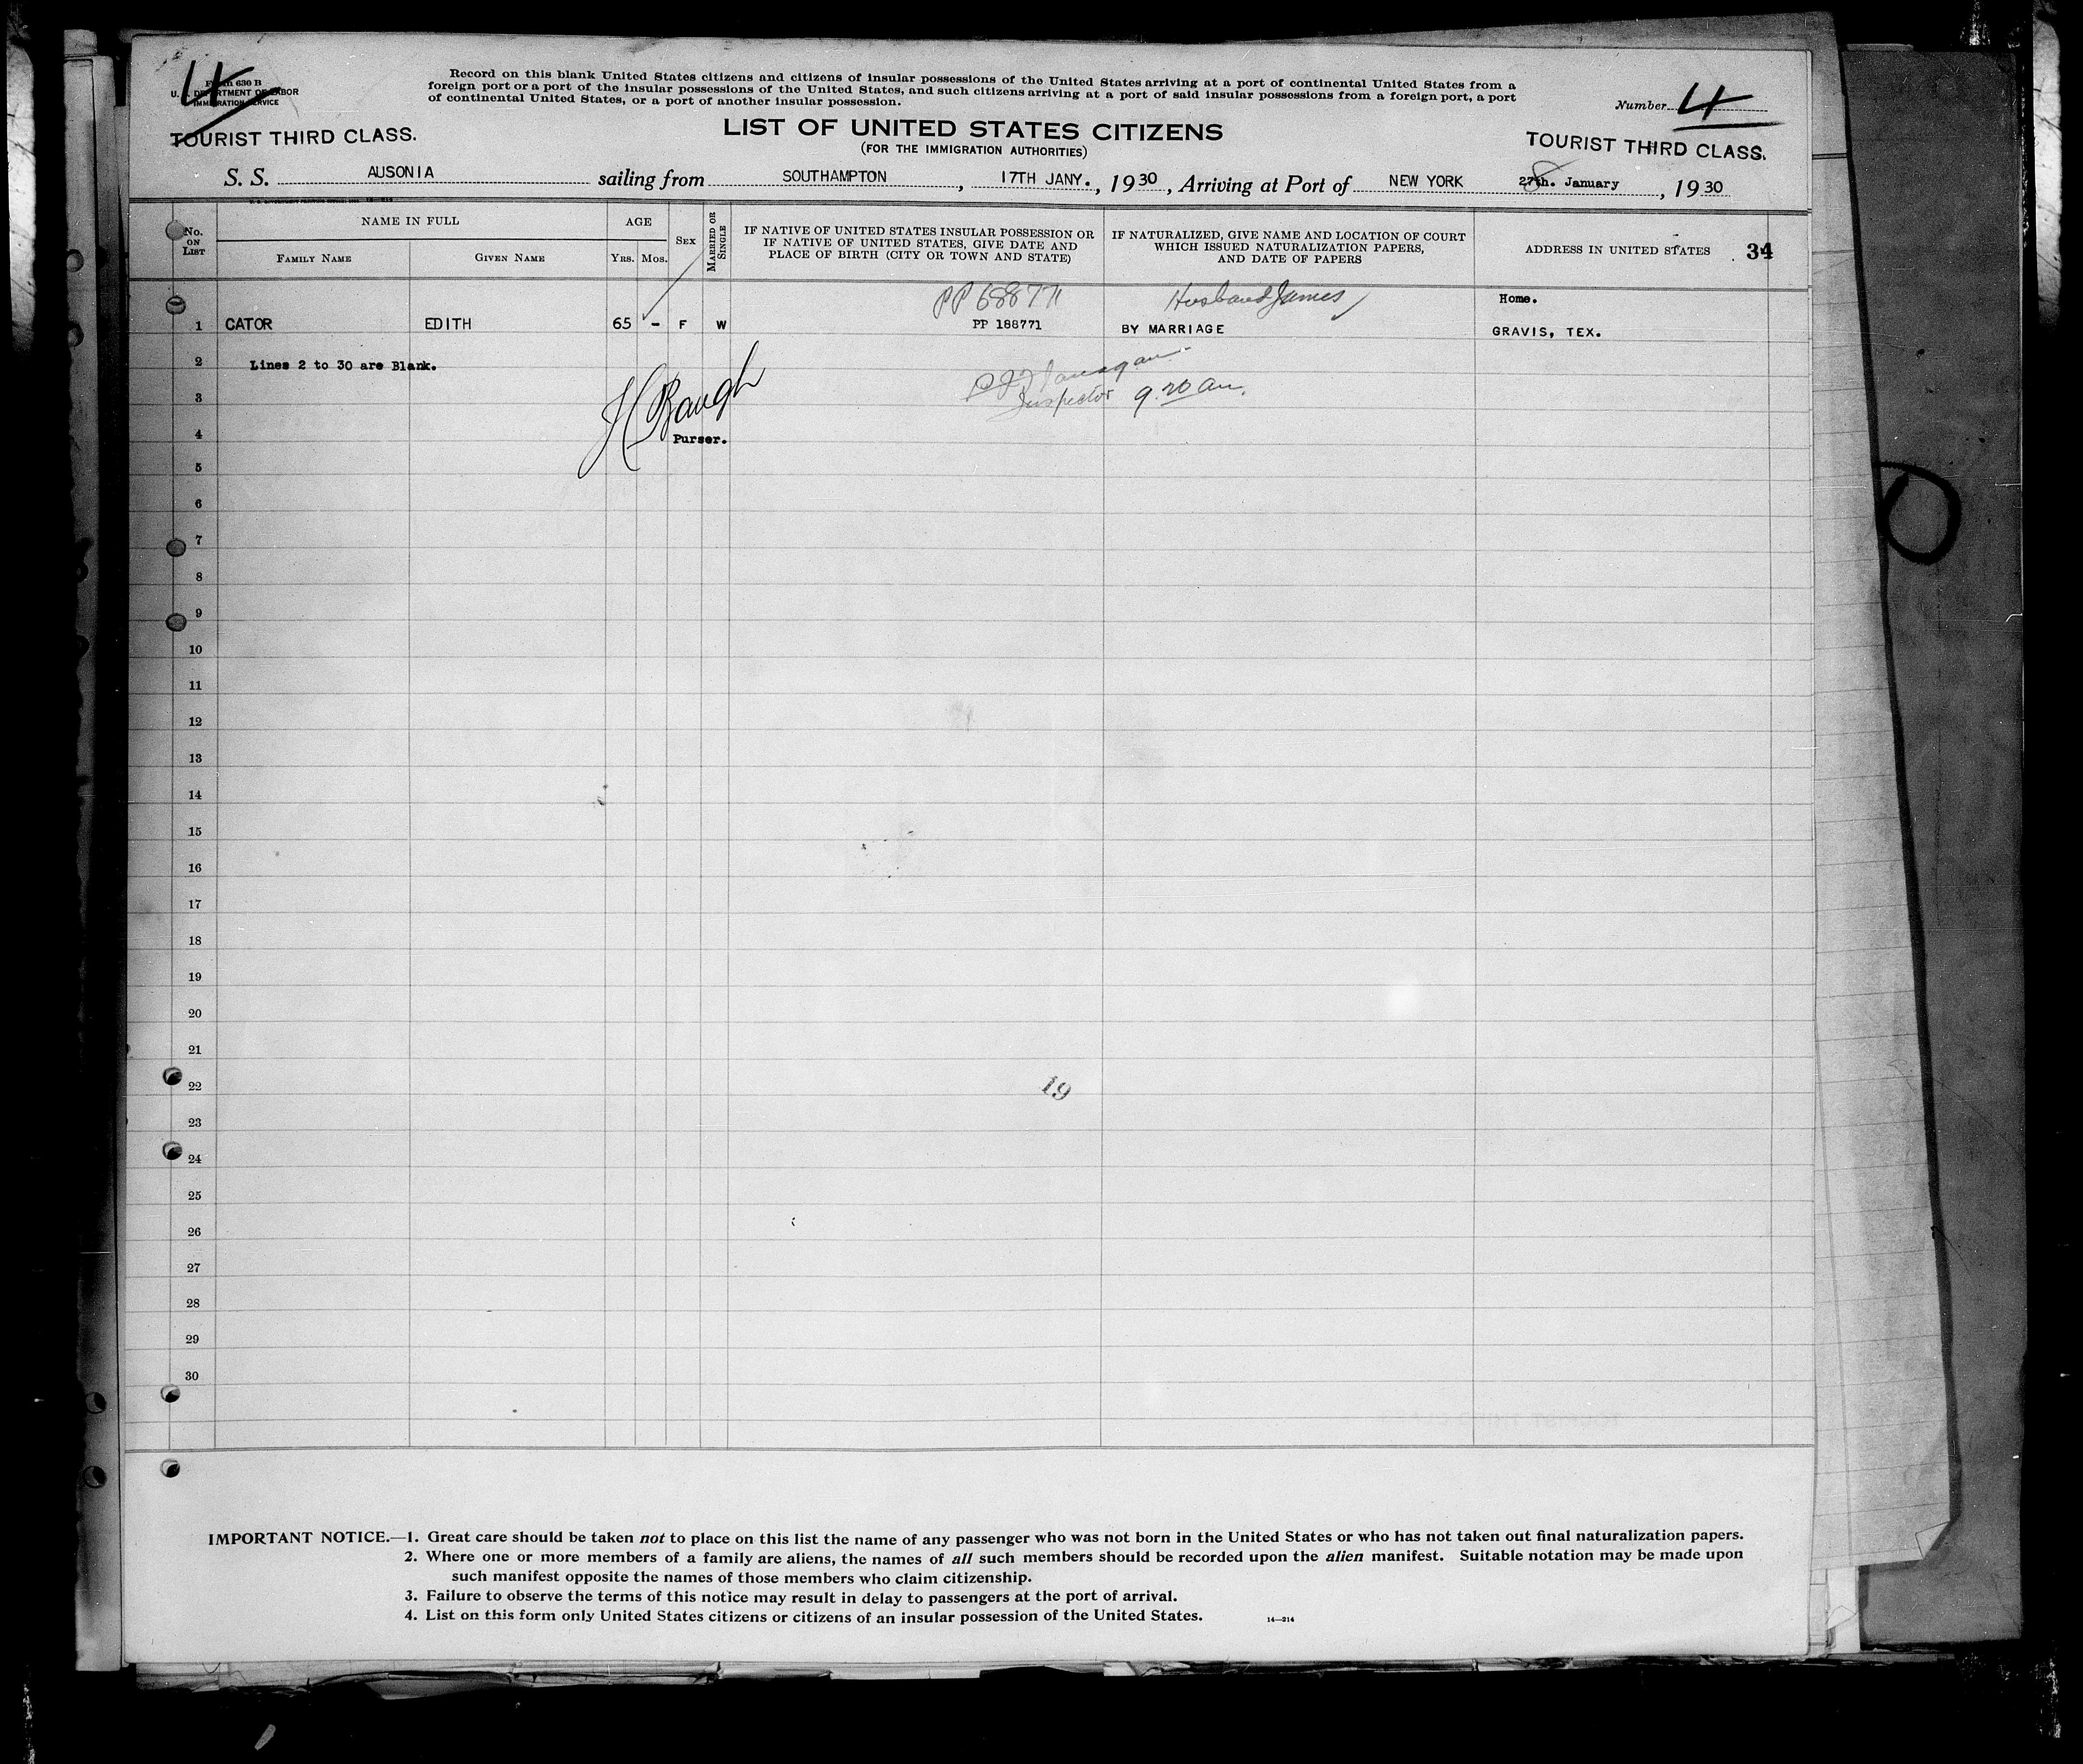 Form 630 B
U. S. DEPARTMENT OF LABOR
IMMIGRATION SERVICE
Record on this blank United States citizens and citizens of insular possessions of the United States arriving at a port of continental United States from a
foreign port or a port of the insular possessions of the United States, and such citizens arriving at a port of said insular possessions from a foreign port, a port
of continental United States, or a port of another insular possession.
Number 4
TOURIST THIRD CLASS.
LIST OF UNITED STATES CITIZENS
TOURIST THIRD CLASS.
(FOR THE IMMIGRATION AUTHORITIES)
S. S. AUSONIA sailing from SOUTHAMPTON, 17TH JANY., 1930, Arriving at Port of NEW YORK 27th. January, 1930
8
No. ON LIST
NAME IN FULL
FAMILY NAME
GIVEN NAME
AGE
YRS. MOS.
SEX
MARRIED OR SINGLE
IF NATIVE OF UNITED STATES INSULAR POSSESSION OR
IF NATIVE OF UNITED STATES, GIVE DATE AND
PLACE OF BIRTH (CITY OR TOWN AND STATE)
IF NATURALIZED, GIVE NAME AND LOCATION OF COURT
WHICH ISSUED NATURALIZATION PAPERS,
AND DATE OF PAPERS
ADDRESS IN UNITED STATES
34
PP 688771 Husband James Home.
1 CATOR EDITH 65 - F W PP 188771 BY MARRIAGE GRAVIS, TEX.
2 Lines 2 to 30 are Blank.
3 H Baugh Inspector 9.20 am.
4 Purser.
5
6
7
8
9
10
11
12
13
14
15
16
17
18
19
20
21
22
19
23
24
25
26
27
28
29
30
IMPORTANT NOTICE.—1. Great care should be taken not to place on this list the name of any passenger who was not born in the United States or who has not taken out final naturalization papers.
2. Where one or more members of a family are aliens, the names of all such members should be recorded upon the alien manifest. Suitable notation may be made upon
such manifest opposite the names of those members who claim citizenship.
3. Failure to observe the terms of this notice may result in delay to passengers at the port of arrival.
4. List on this form only United States citizens or citizens of an insular possession of the United States.
14—214